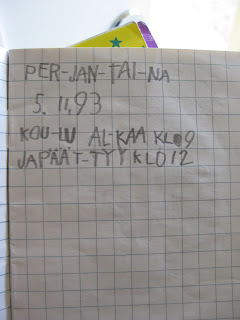 PER-JAN-TAI-NA
5. 11.93
KOU-LU AL-KAA KLO9
JAPÄÄT-TYY KLO12